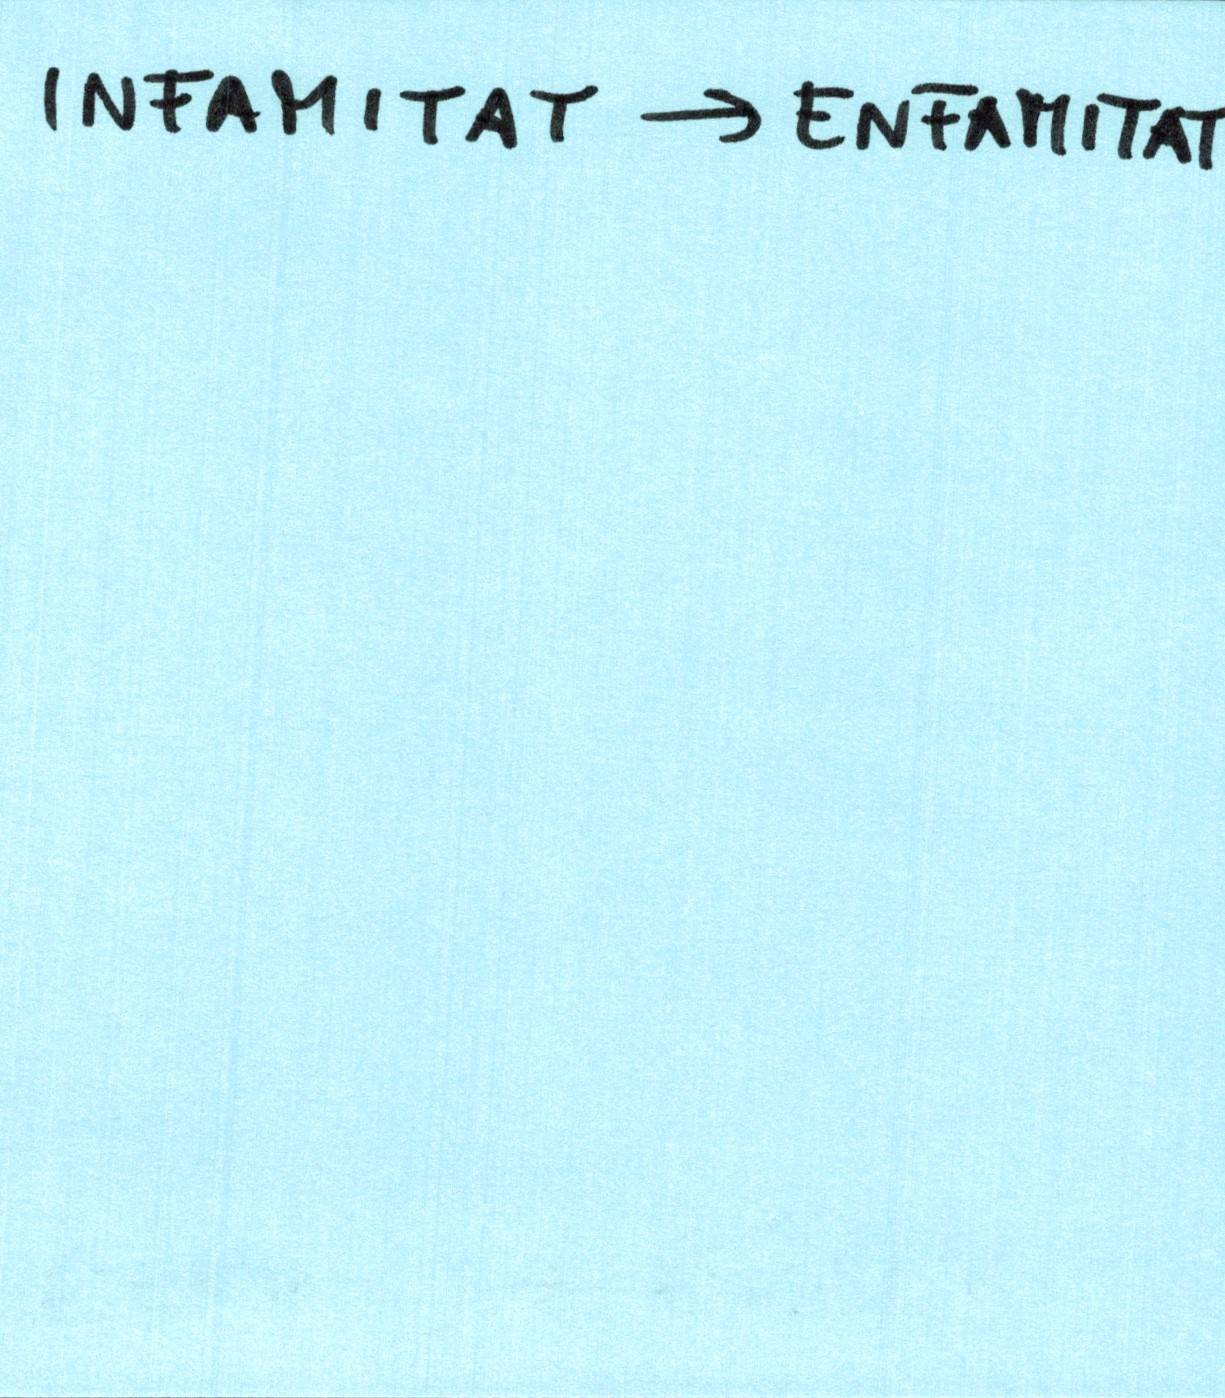 INFAMITAT → ENFAMITAT